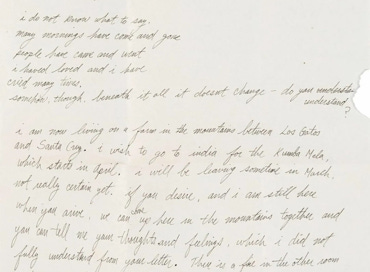 i do not know what to say.
many mornings have come and gone
people have came and went
i haved loved and i have
cried many times,
somehow, though, beneath it all it doesn't change - do you understand?
i am now living on a farm in the mountains between Los Gatos
and Santa Cruz. i wish to go to india for the Kumba Mela,
which starts in April. i will be leaving sometime in March,
not really certain yet. if you desire, and i am still here
when you arive, we can up here in the mountains together and
you can tell me your thoughts and feelings, which i did not
fully understand from your letter. There is a fire in the other room